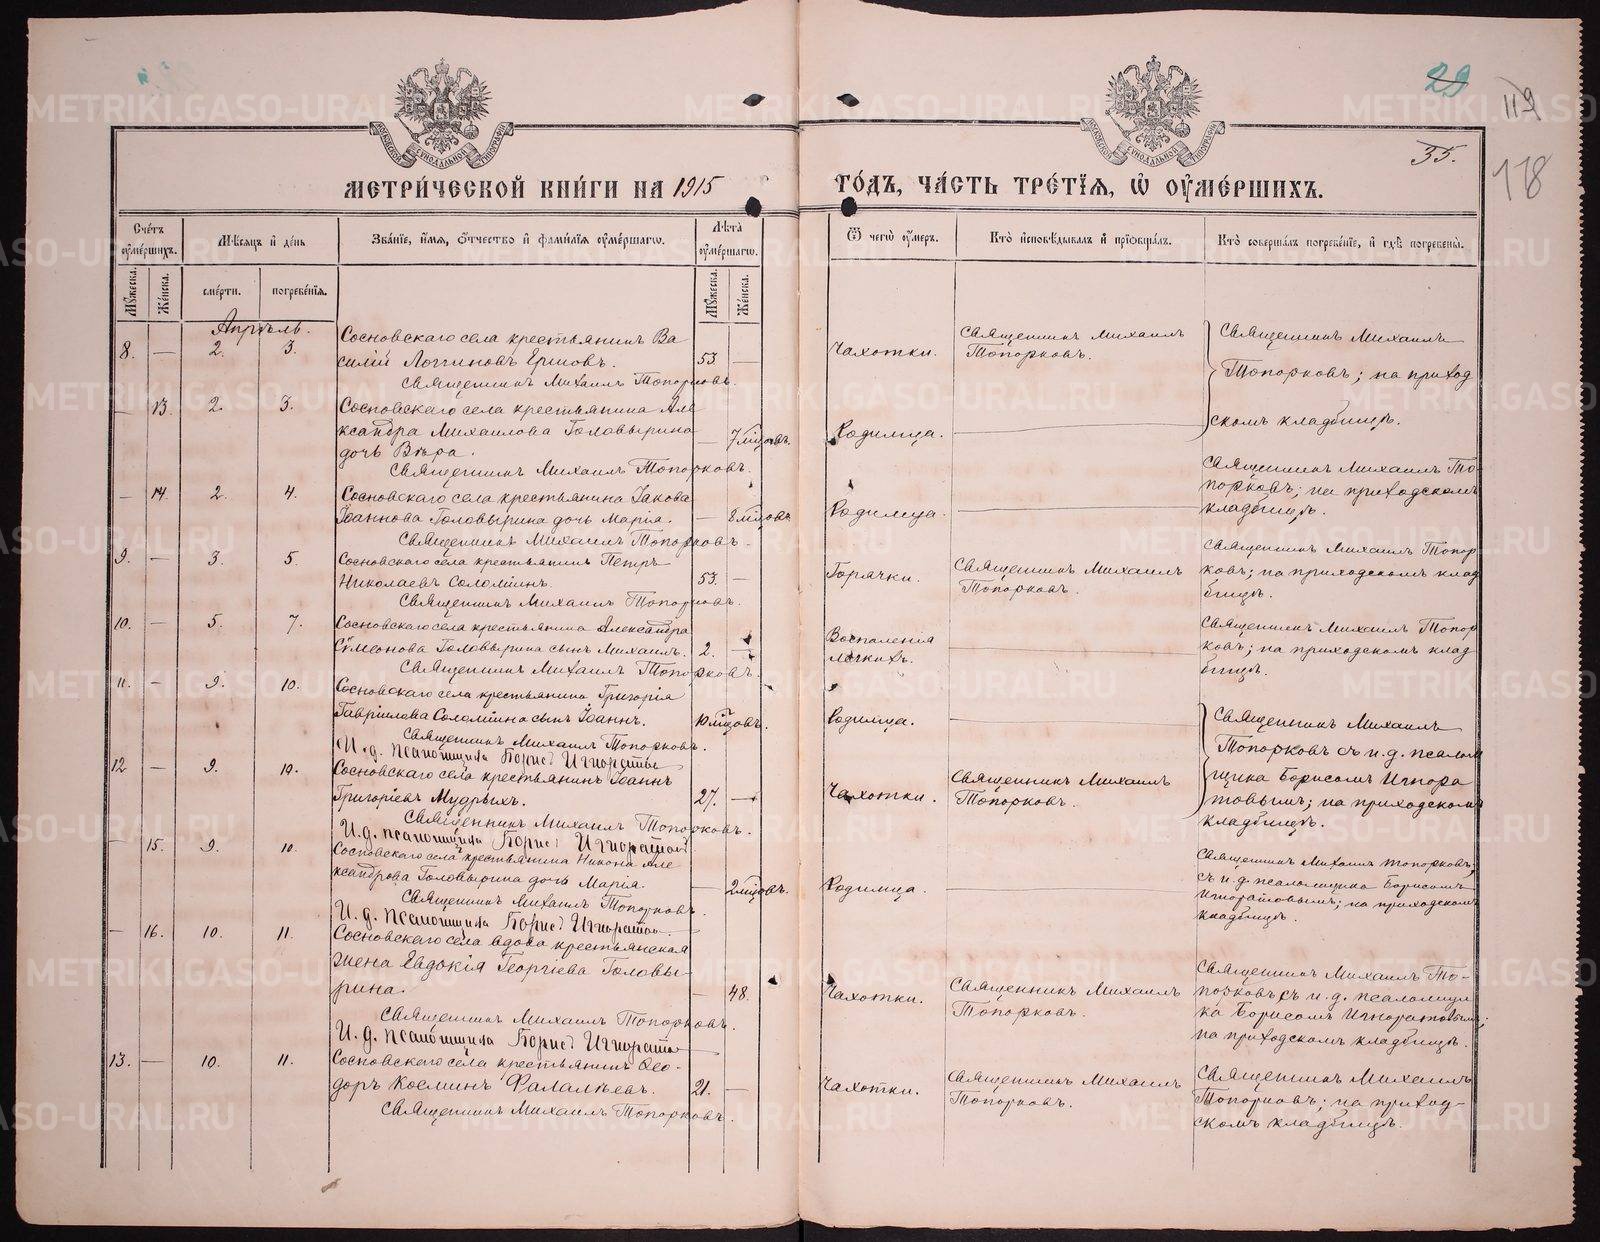 29
119
35.
118
МОСКОВСКОЙ СѴНОДАЛЬНОЙ ТИПОГРАФІИ
МОСКОВСКОЙ СѴНОДАЛЬНОЙ ТИПОГРАФІИ
МЕТРИ́ЧЕСКОЙ КНИ́ГИ НА 1915 ГО́ДЪ, ЧА́СТЬ ТРЕ́ТЇѦ, Ѡ҆ ОУ҆МЕ́РШИХЪ.
Сче́тъ оу҆ме́ршихъ.
Мѣ́сѧцъ и҆ де́нь
Зва́нїе, и҆́мѧ, ѻ҆́тчество и҆ фами́лїѧ оу҆ме́ршагѡ.
Лѣ́та оу҆ме́ршагѡ.
Ѿ чегѡ̀ оу҆́меръ.
Кто̀ и҆сповѣ́дывалъ и҆ прїѡбща́лъ.
Кто̀ соверша́лъ погребе́нїе, и҆ гдѣ̀ погребены̀.
Мꙋ́жеска.
Же́нска.
сме́рти.
погребе́нїѧ.
Мꙋ́жеска.
Же́нска.
Апрѣль.
8. — 2. 3. Сосновскаго села крестьянинъ Ва
силій Логгиновъ Ершовъ. 53 —
Священникъ Михаилъ Топорковъ.
Чахотки.
Священникъ Михаилъ
Топорковъ.
Священникъ Михаилъ
Топорковъ; на приход
скомъ кладбищѣ.
— 13. 2. 3. Сосновскаго села крестьянина Але
ксандра Михаилова Головырина
дочь Вѣра. — 7 мѣсцовъ.
Священникъ Михаилъ Топорковъ.
Родимца.
— 14. 2. 4. Сосновскаго села крестьянина Іакова
Іоаннова Головырина дочь Марія. — 8 мѣсцовъ
Священникъ Михаилъ Топорковъ.
Родимца.
Священникъ Михаилъ То
порковъ; на приходскомъ
кладбищѣ.
9. — 3. 5. Сосновскаго села крестьянинъ Петръ
Николаевъ Соломеинъ. 53. —
Священникъ Михаилъ Топорковъ.
Горячки.
Священникъ Михаилъ
Топорковъ.
Священникъ Михаилъ Топор
ковъ; на приходскомъ клад
бищѣ.
10. — 5. 7. Сосновскаго села крестьянина Александра
Сѵмеонова Головырина сынъ Михаилъ. 2. —
Священникъ Михаилъ Топорковъ.
Воспаленія
легкихъ.
Священникъ Михаилъ Топор
ковъ; на приходскомъ клад
бищѣ.
11. — 9. 10. Сосновскаго села крестьянина Григорія
Гавріилова Соломеина сынъ Іоаннъ. 10 мѣсцовъ.
Священникъ Михаилъ Топорковъ.
И. д. псаломщика Борисъ
Родимца.
Священникъ Михаилъ
Топорковъ съ и. д. псалом
щика Борисомъ Игнора
товымъ; на приходскомъ
кладбищѣ.
12 — 9. 10. Сосновскаго села крестьянинъ Іоаннъ
Григоріевъ Мудрыхъ. 27. —
Священникъ Михаилъ Топорковъ.
И. д. псаломщика Борисъ
Чахотки.
Священникъ Михаилъ
Топорковъ.
— 15. 9. 10. Сосновскаго села крестьянина Никона Але
ксандрова Головырина дочь Марія. — 2 мѣсцовъ.
Священникъ Михаилъ Топорковъ.
И. д. псаломщика Борисъ
Родимца.
Священникъ Михаилъ Топорковъ;
съ и. д. псаломщика Борисомъ
Игноратовымъ; на приходскомъ
кладбищѣ.
— 16. 10. 11. Сосновскаго села вдова крестьянская
жена Евдокія Георгіева Головы-
рина. — 48.
Священникъ Михаилъ Топорковъ.
И. д. псаломщика Борисъ
Чахотки.
Священникъ Михаилъ
Топорковъ.
Священникъ Михаилъ То-
порковъ съ и. д. псаломщи
ка Борисомъ Игноратовымъ;
на приходскомъ кладбищѣ.
13. — 10. 11. Сосновскаго села крестьянинъ Ѳео-
доръ Косминъ Фалалѣевъ. 21. —
Священникъ Михаилъ Топорковъ.
Чахотки.
Священникъ Михаилъ
Топорковъ.
Священникъ Михаилъ
Топорковъ; на приход-
скомъ кладбищѣ.
METRIKI.GASO-URAL.RU